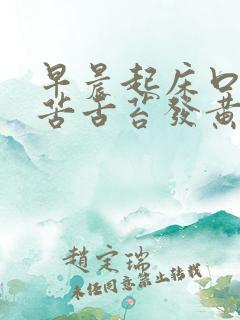 早晨起床口
苦舌苔發黃
趙定瑞
未经同意禁止转载